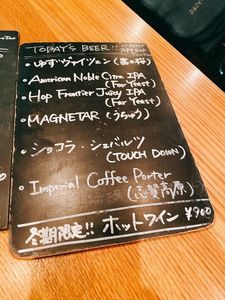 TODAY'S BEER!!
・ゆずヴァイツェン
・American Noble Citra IPA
(Far Yeast)
・Hop Frontier Juicy IPA
(Far Yeast)
・MAGNETAR (うちゅう)
・ショコラ・シュバルツ
(TOUCH DOWN)
・Imperial Coffee Porter
(志賀高原)
冬期限定!! ホットワイン ¥900